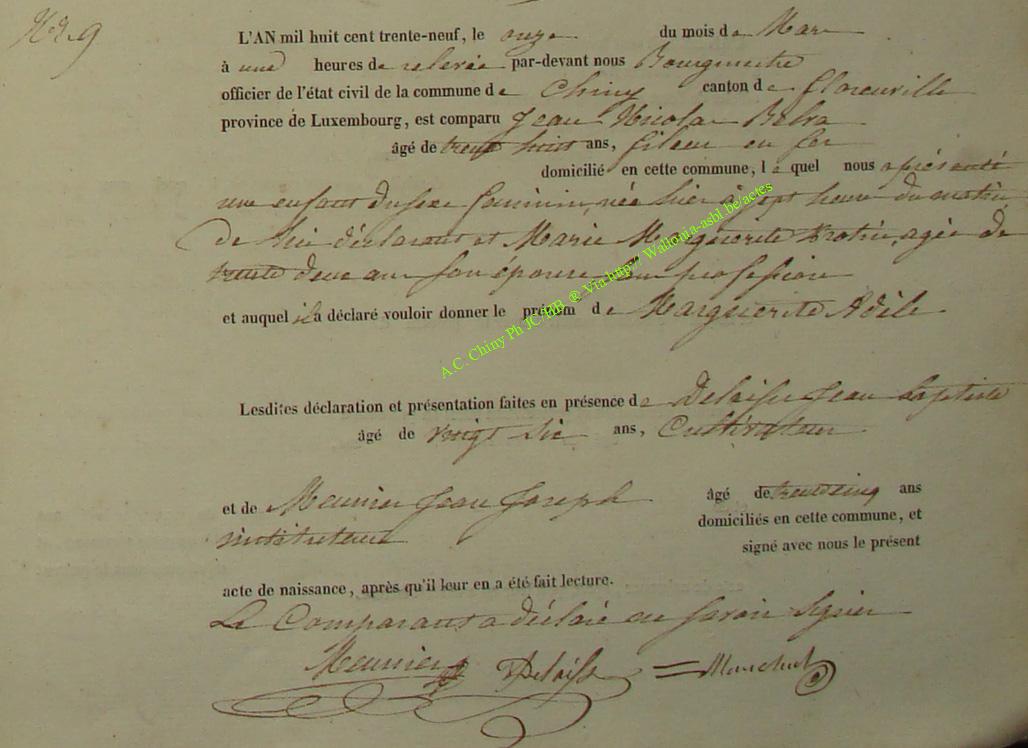 N.º 9
L'AN mil huit cent trente-neuf, le onze du mois de Mars
à une heures de relevée par-devant nous Bourgmestre
officier de l'état civil de la commune de Chiny canton de florenville
province de Luxembourg, est comparu Jean Nicolas
âgé de trente huit ans, fileur en fer
domicilié en cette commune, lequel nous a présenté
une enfant du sexe féminin, née hier à sept heure du matin
de lui déclarant et Marie Marguerite agée de
trente deux ans son épouse sans profession
et auquel il a déclaré vouloir donner le prénom de Marguerite Adèle
A.C. Chiny Ph JC/BB ® Via http:// Wallonia-asbl be/actes
Lesdites déclaration et présentation faites en présence de Jean Baptiste
âgé de vingt six ans, Cultivateur
et de Meunier Jean Joseph âgé de trente cinq ans
instituteur domiciliés en cette commune, et
signé avec nous le présent
acte de naissance, après qu'il leur en a été fait lecture.
Le Comparant a déclaré ne savoir signer
Meunier